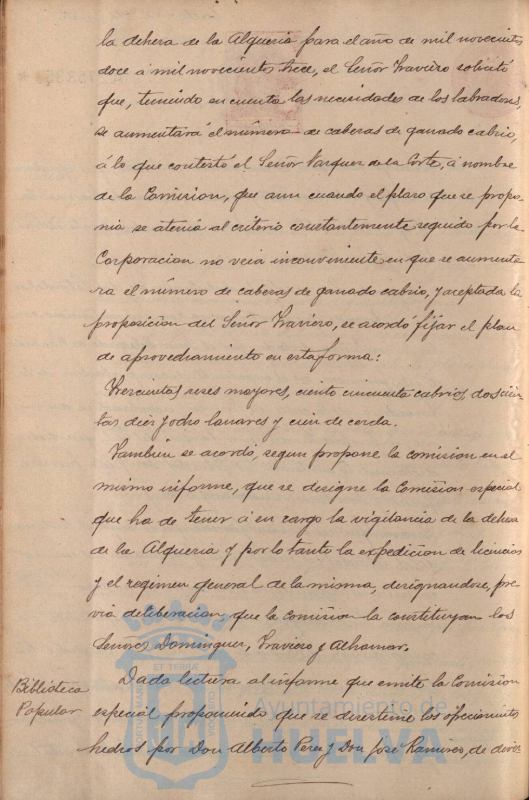 la dehesa de la Alqueria para el año de mil novecientos
doce á mil novecientos trece, el Señor Travieso solicitó
que, teniendo en cuenta las necesidades de los labradores,
se aumentara el número de cabezas de ganado cabrio,
á lo que contestó el Señor Vazquez de la Corte, á nombre
de la Comision, que aun cuando el plazo que se propo-
nia se atenia al criterio constantemente seguido por la
Corporacion no veia inconveniente en que se aumenta-
ra el número de cabezas de ganado cabrio, y aceptada la
proposicion del Señor Travieso, se acordó fijar el plan
de aprovechamiento en esta forma:
Trescientas reses mayores, ciento cincuenta cabrios, doscien-
tas diez y ocho lanares y cien de cerda.
Tambien se acordó, segun propone la comision en el
mismo informe, que se designe la Comision especial
que ha de tener á su cargo la vigilancia de la dehesa
de la Alqueria y por lo tanto la expedicion de licencias
y el regimen general de la misma, designandose, pre-
via deliberacion, que la Comision la constituyan los
Señores Dominguez, Travieso y Alhamar.
Biblioteca
Popular
Dada lectura al informe que emite la Comision
especial proponiendo que se desestime los ofrecimientos
hechos por Don Alberto Perez y Don José Ramirez, de
Ayuntamiento de
HUELVA